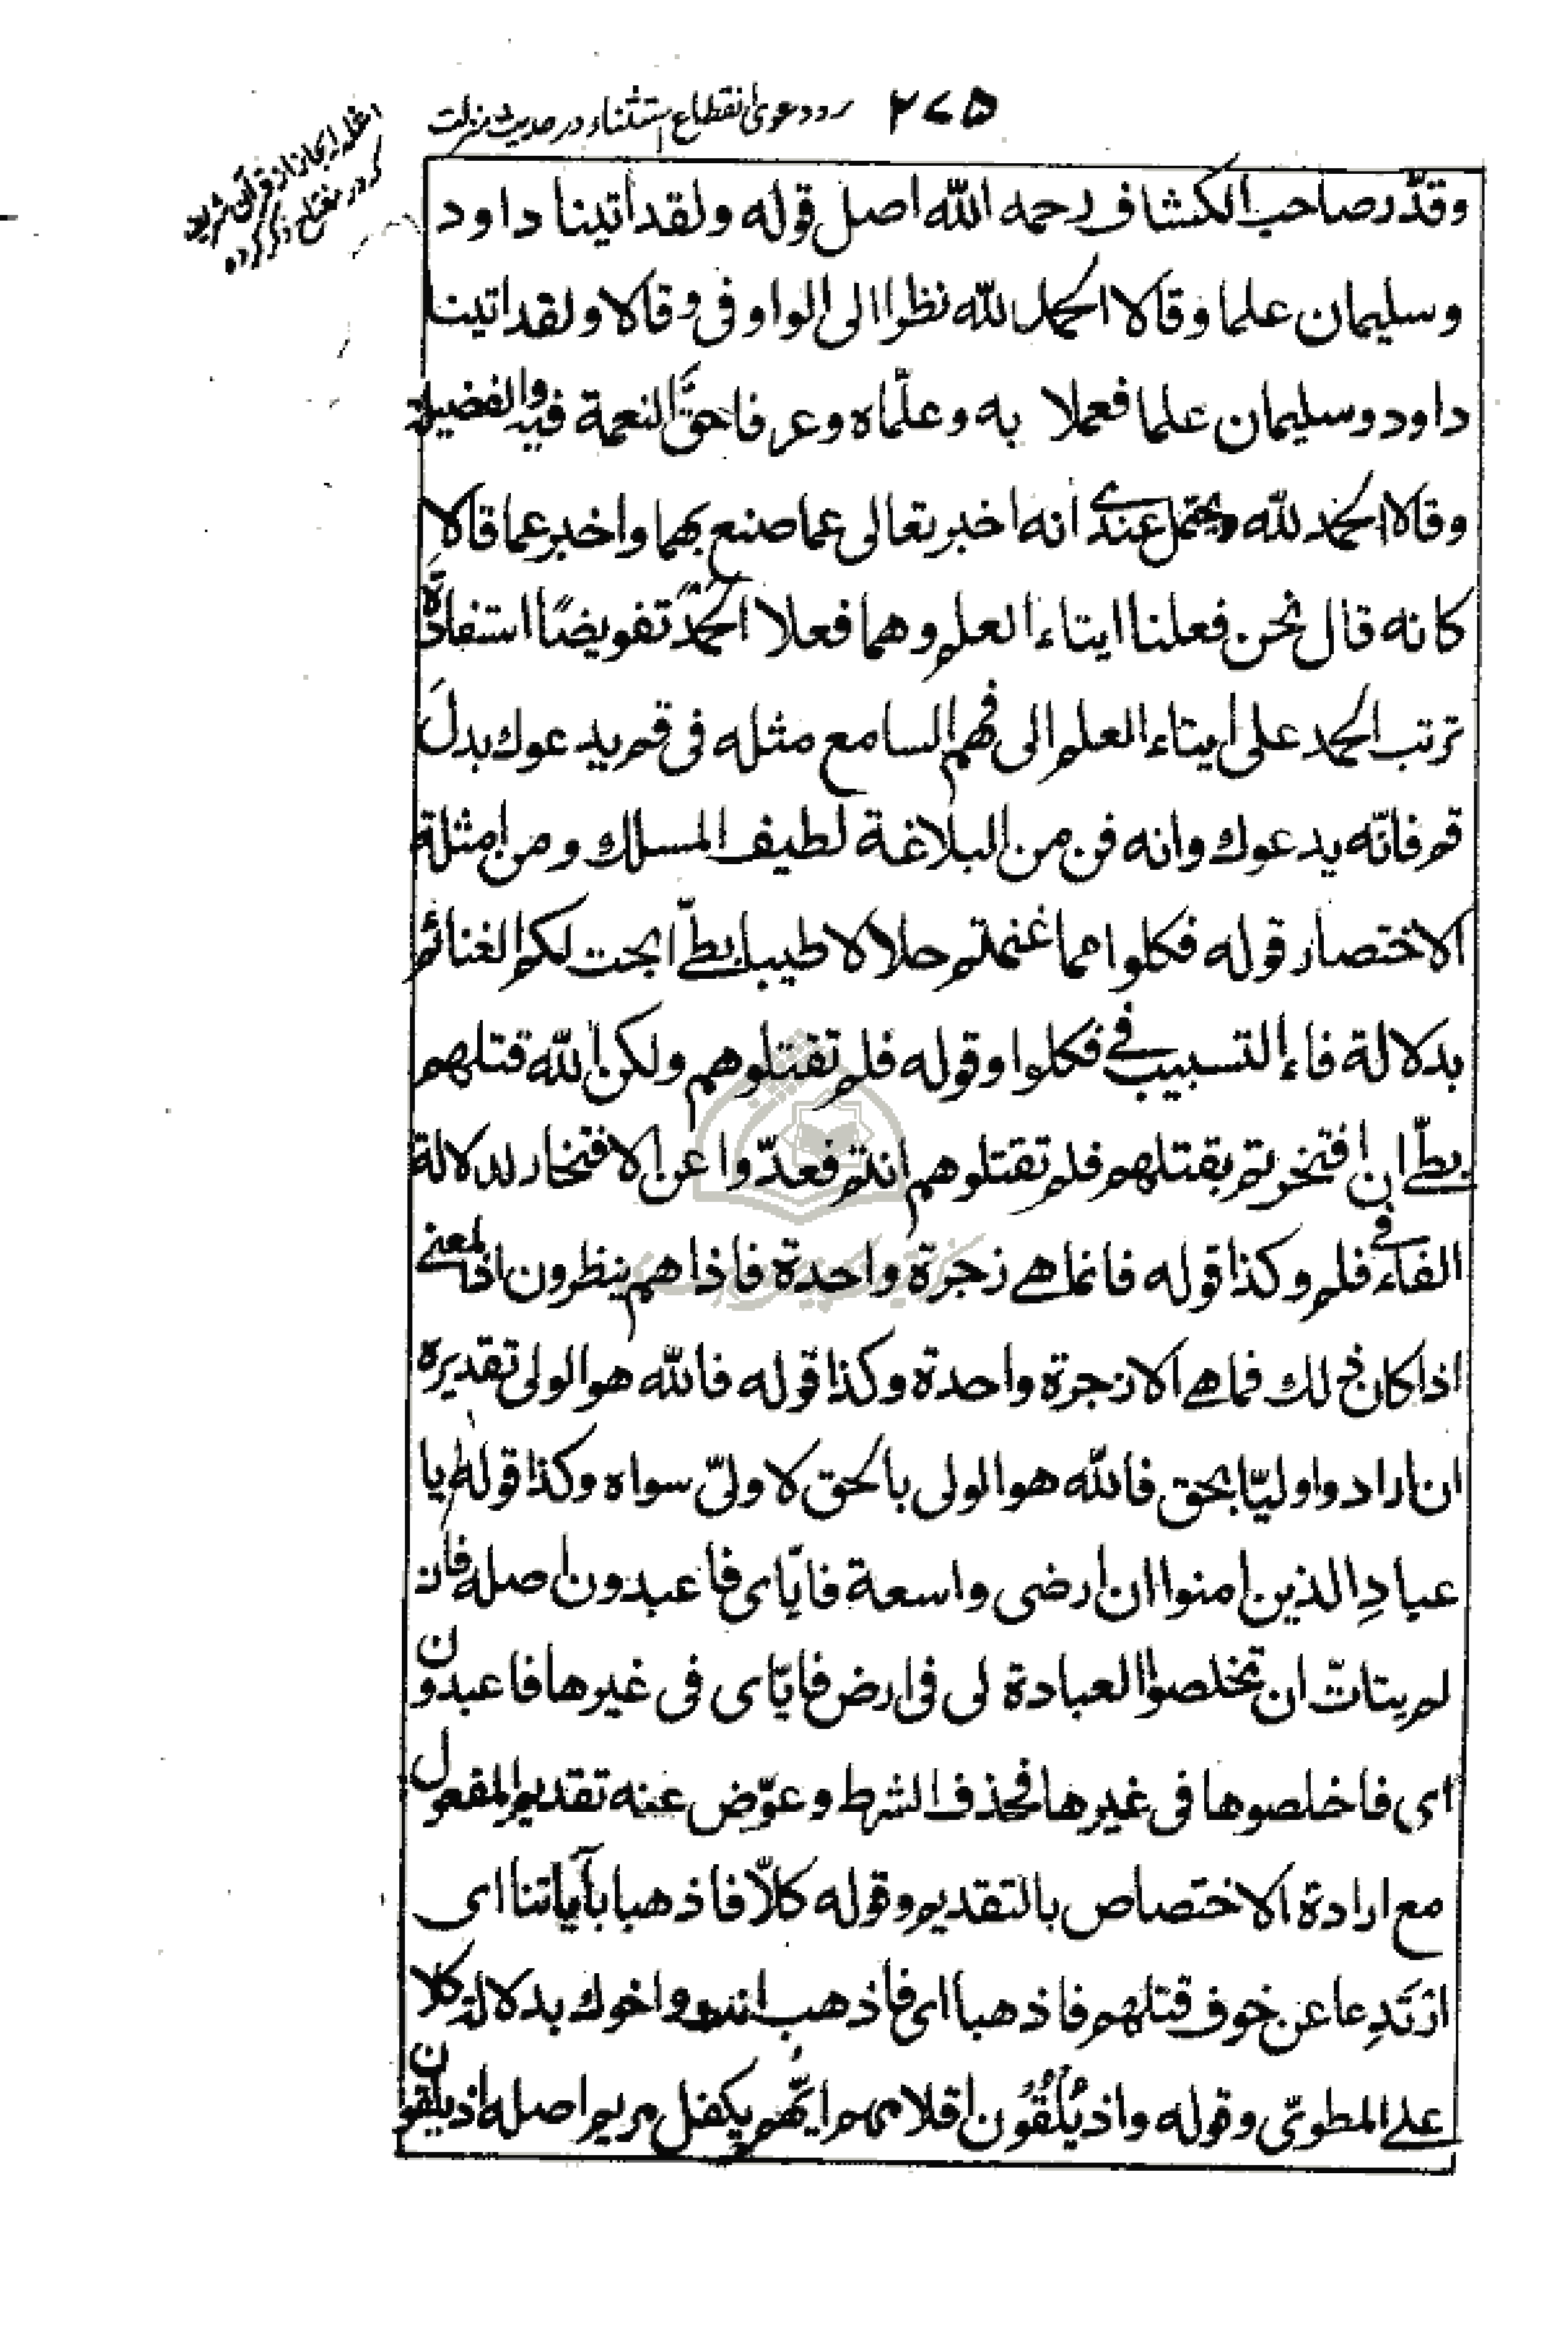 ۲۷۵ ردّ دعوی انقطاع استثناء در حدیث منزلت
امثلهٔ ایجاز از قرآن شریف
که در مفتاح ذکر کرده
وقدّر صاحب الکشاف رحمه الله اصل قوله ولقد اتینا داود
وسلیمان علما وقالا الحمد لله نظرا الی الواو فی وقالا ولقد اتینا
داود وسلیمان علما فعملا به وعلّماه وعرفا حقَّ النعمة فیه والفضیلة
وقالا الحمد لله ویحتمل عندی انه اخبر تعالی عما صنع بهما واخبر عما قالا
کانه قال نحن فعلنا ایتاء العلم وهما فعلا الحمد تفویضًا استفادة
ترتب الحمد علی ایتاء العلم الی فهم السامع مثله فی قم یدعوك بدلَ
قم فانّه یدعوك وانه فن من البلاغة لطیف المسلك ومن امثلة
الاختصار قوله فکلوا مما غنمتم حلالا طیبا بطیّ ابحت لکم الغنائم
بدلالة فاء التسبیب فی فکلوا وقوله فلم تقتلوهم ولکن الله قتلهم
بطیّ ان افتخرتم بقتلهم فلم تقتلوهم انتم فعدّوا عن الافتخار لدلالة
الفاء فی فلم وکذا قوله فانما هی زجرة واحدة فاذا هم ینظرون اذ المعنی
اذا کان ذلك فما هی الا زجرة واحدة وکذا قوله فالله هو الولی تقدیره
ان ارادوا ولیّا بحق فالله هو الولی بالحق لا ولیّ سواه وکذا قوله یا
عبادِ الذین امنوا ان ارضی واسعة فایّای فاعبدون اصله فان
لم یتاتّ ان تخلصوا العبادة لی فی ارض فایّای فی غیرها فاعبدون
ای فاخلصوها فی غیرها فحذف الشرط وعوّض عنه تقدیم المفعول
مع ارادة الاختصاص بالتقدیم وقوله کلّا فاذهبا بآیاتنا ای
ارتَدِعا عن خوف قتلهم فاذهبا ای فاذهب انت واخوك بدلالة کلا
علی المطویّ وقوله واذ یُلْقُوُن اقلامهم ایّهم یکفل مریم اصله اذ یلقون